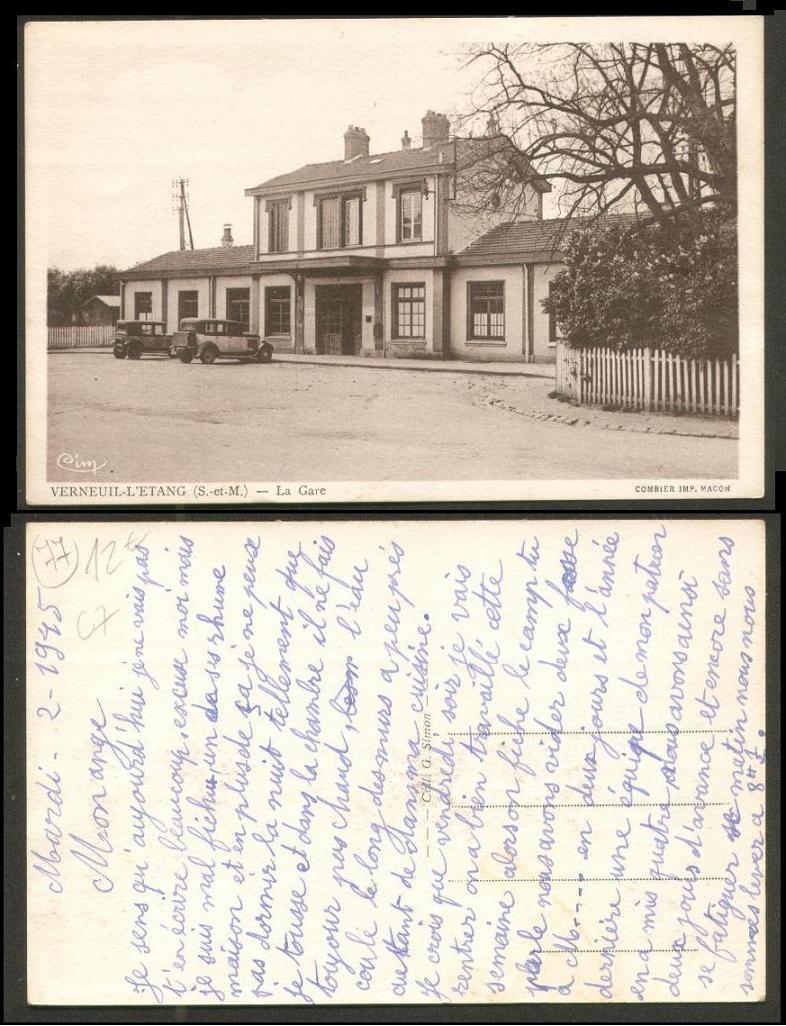 Cim
VERNEUIL-L'ETANG (S.-et-M.) — La Gare
COMBIER IMP. MACON
77
12€
C7
Mardi - 2 - 1945
Mon ange
Je sens qu'aujourd'hui je ne vais pas
t'en écrire beaucoup, excuse moi mais
je suis mal fichu, un de ses rhume
maison et en plus de ça je ne peux
pas dormir la nuit tellement que
je tousse et dans la chambre il ne fais
toujour pas chaud, l'eau
coule le long des murs a peu près
autant de dans ma cuisine.
Je crois que vendredi soir je vais
rentrer on a bien travaillé cette
semaine alors on fiche le camp tu
parle nous avons vider deux fosse
a M---- en deux jours et l'année
dernière une équipe de mon patron
en a mis quatre nous avons ainsi
deux jours d'avance et encore sans
se fatiguer ce matin nous nous
sommes lever a 8h ½.
Edit. G. Simon